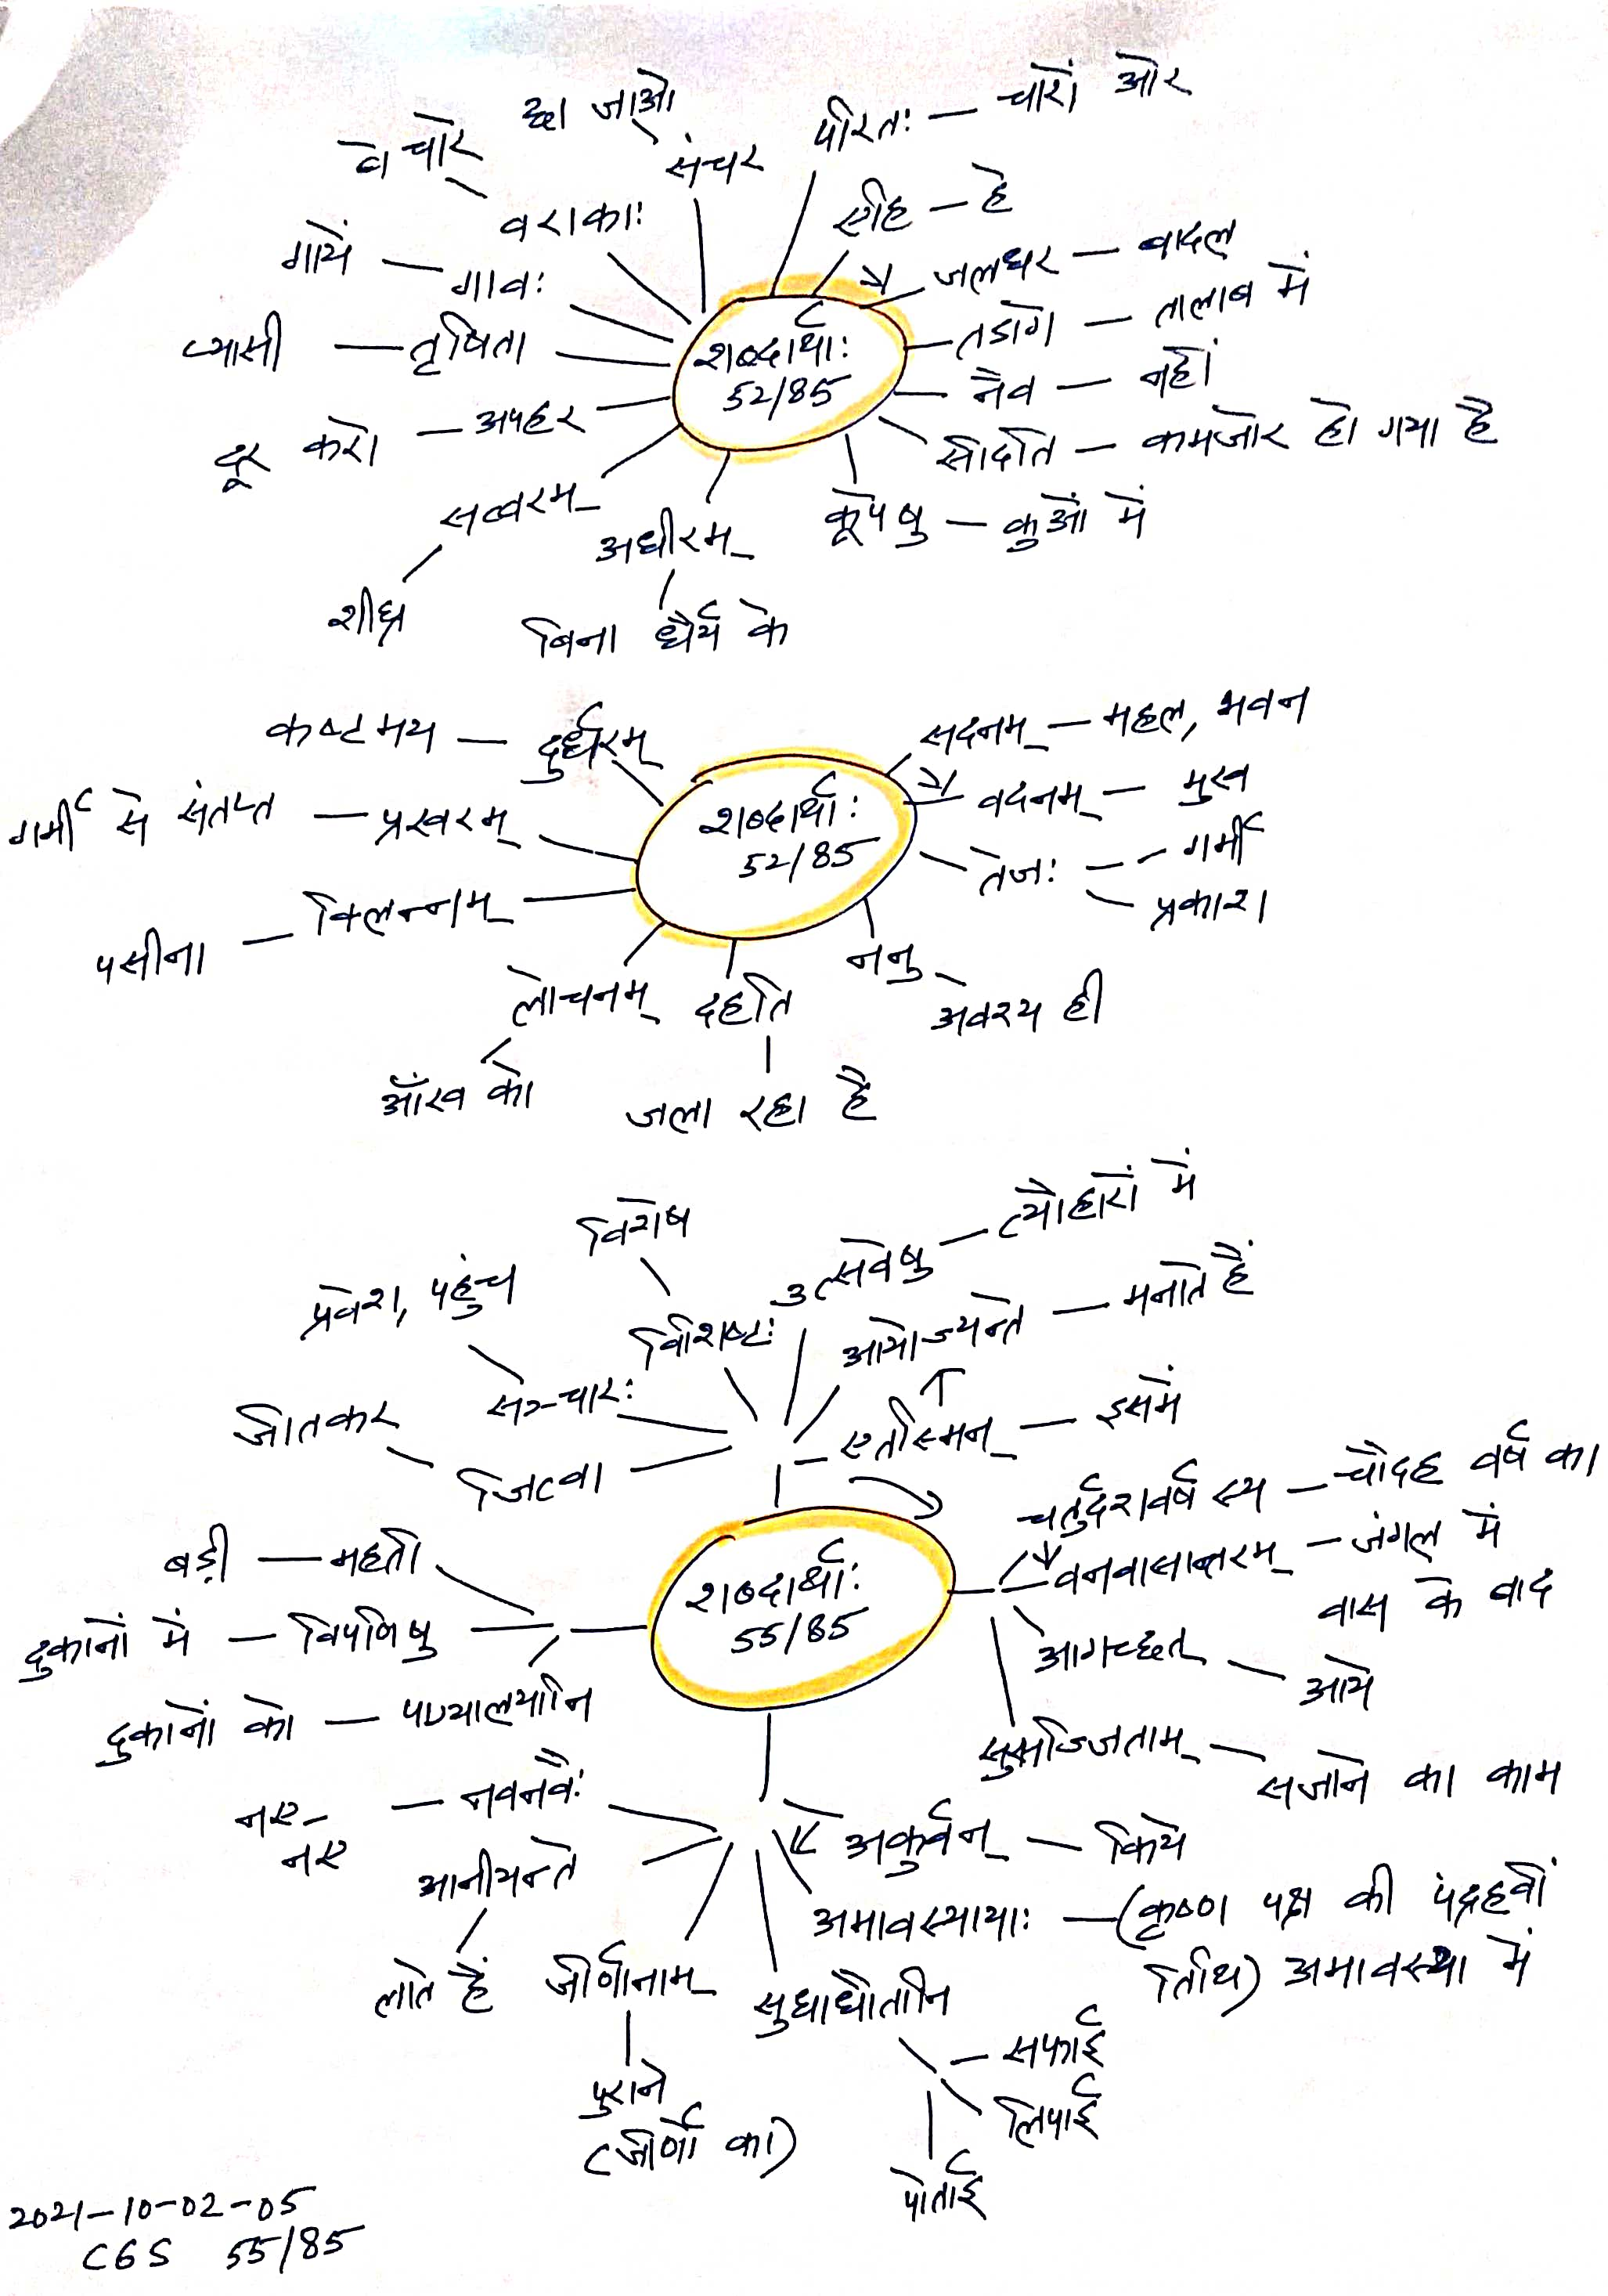 शब्दार्थाः
52/85
परितः — चारों ओर
एहि — हे
जलधर — बादल
तडागे — तालाब में
नैव — नहीं
सीदति — कमजोर हो गया है
कूपेषु — कुओं में
अधीरम्
बिना धैर्य के
सत्वरम्
शीघ्र
दूर करो — अपहर
प्यासी — तृषिता
गायें — गावः
वराकाः
संचर
जाओ
शब्दार्थाः
52/85
सदनम् — महल, भवन
वदनम् — मुख
तेजः — गर्मी
— प्रकाश
ननु — अवश्य ही
दहति
जला रहा है
लोचनम्
आँख को
पसीना — क्लिन्नम्
गर्मी से संतप्त — प्रखरम्
कष्टमय — दुर्धरम्
शब्दार्थाः
55/85
उत्सवेषु — त्यौहारों में
आयोज्यन्ते — मनाते हैं
एतस्मिन् — इसमें
चतुर्दशवर्षस्य — चौदह वर्ष का
वनवासान्तरम् — जंगल में
वास के बाद
आगच्छत् — आये
सुसज्जिताम् — सजाने का काम
अकुर्वन् — किये
अमावस्यायाः — (कृष्ण पक्ष की पंद्रहवीं
तिथि) अमावस्या में
सुधाधौतानि
— सफाई
लिपाई
पोताई
जीर्णानाम्
पुराने
(जीर्णों का)
आनीयन्ते
लाते हैं
नए — नवनवैः
नए
दुकानों को — पण्यालयानि
दुकानों में — विपणिषु
बड़ी — महती
जित्वा
जीतकर
सञ्चारः
प्रवेश, पहुंच
विशिष्टः
विशेष
2021-10-02-05
C6S 55/85